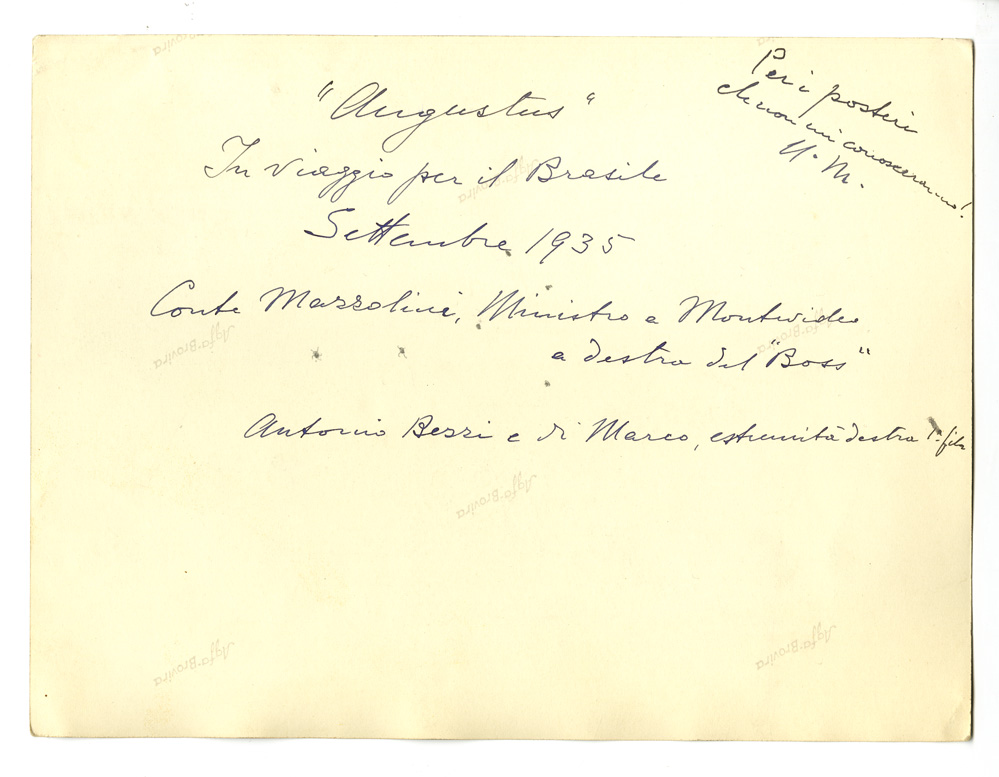 "Augustus"
In viaggio per il Brasile
Settembre 1935
Conte Mazzolini, Ministro a Montevideo
a destra del "Boss"
Antonio Bezzi e di Marco, estremità destra 1ª fila
Per i posteri
che non mi conosceranno!
U. M.
Agfa-Brovira
Agfa-Brovira
Agfa-Brovira
Agfa-Brovira
Agfa-Brovira
Agfa-Brovira
Agfa-Brovira
Agfa-Brovira